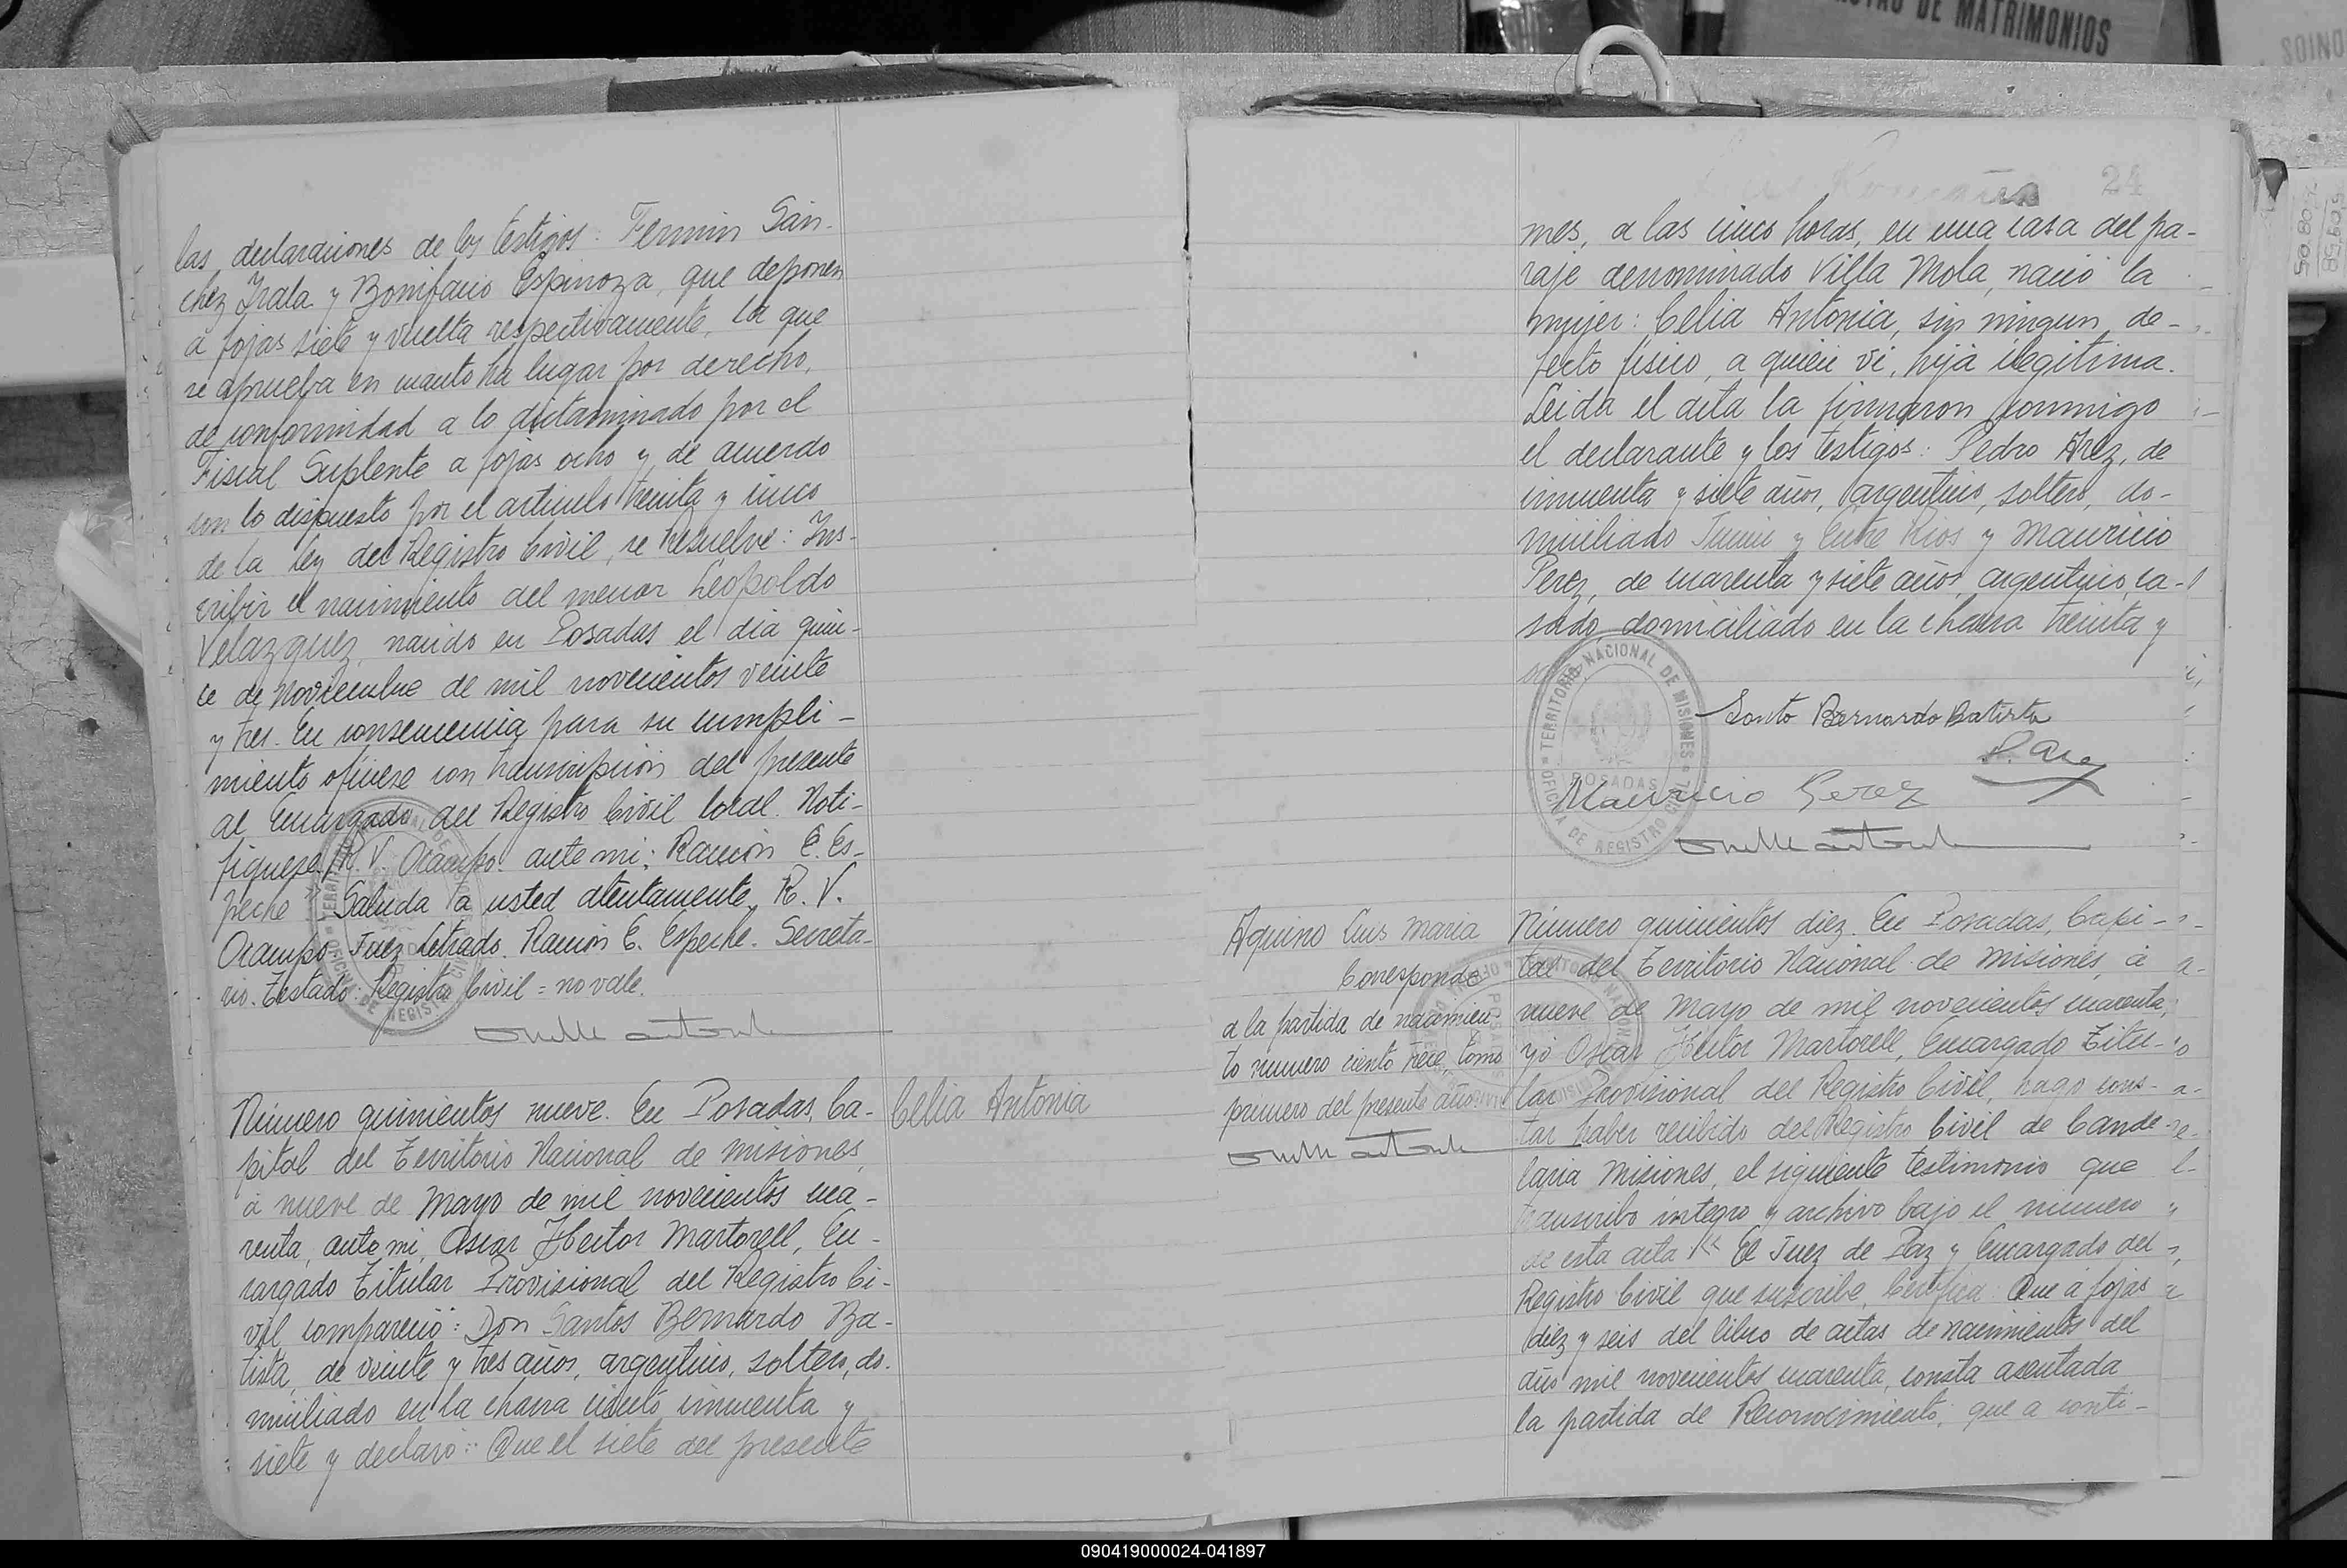 STRO DE MATRIMONIOS
las declaraciones de los testigos: Fermin Sán-
chez Irala y Bonifacio Espinoza, que deponen
a fojas siete y vuelta respectivamente, la que
se aprueba en cuanto ha lugar por derecho,
de conformidad a lo dictaminado por el
Fiscal Suplente a fojas ocho y de acuerdo
con lo dispuesto por el articulo treinta y cinco
de la ley del Registro Civil, se Resuelve: Ins-
cribir el nacimiento del menor Leopoldo
Velazquez, nacido en Posadas el dia quin-
ce de Noviembre de mil novecientos veinte
y tres. En consecuencia para su cumpli-
miento ofíciese con transcripción del presente
al Encargado del Registro Civil local. Noti-
fíquese. R. V. Ocampo. ante mi: Ramón E. Es-
peche" Saluda a usted atentamente. R. V.
Ocampo. Juez Letrado. Ramón E. Espeche. Secreta-
rio. Testado: Registro Civil = no vale.
Número quinientos nueve. En Posadas, Ca-
pital del Territorio Nacional de Misiones,
á nueve de Mayo de mil novecientos cua-
renta, ante mi, Oscar Hector Martorell, En-
cargado Titular Provisional del Registro Ci-
vil compareció: Don Santos Bernardo Ba-
tista, de veinte y tres años, argentino, soltero, do-
miciliado en la chacra ciento cincuenta y
siete y declaró: Que el siete del presente
Celia Antonia
24
mes, a las cinco horas, en una casa del pa-
raje denominado Villa Mola, nació la
mujer: Celia Antonia, sin ningun de-
fecto físico, a quien vi, hija ilegitima.
Leida el acta la firmaron conmigo
el declarante y los testigos: Pedro Arez, de
cincuenta y siete años, argentino, soltero, do-
miciliado Junin y Entre Rios y Mauricio
Perez, de cuarenta y siete años, argentino, ca-
sado, domiciliado en la chacra treinta y
TERRITORIO NACIONAL DE MISIONES
POSADAS
OFICINA DE REGISTRO CIVIL
Santo Bernardo Batista
P. Arez
Mauricio Perez
Aquino Luis Maria
Corresponde
a la partida de nacimien-
to numero ciento trece, tomo
primero del presente año.
Número quinientos diez. En Posadas, Capi-
tal del Territorio Nacional de Misiones, á
nueve de Mayo de mil novecientos cuarenta,
yó Oscar Hector Martorell, Encargado Titu-
lar Provisional del Registro Civil, hago cons-
tar haber recibido del Registro Civil de Cande-
laria Misiones, el siguiente testimonio que
transcribo integro y archivo bajo el número
de esta acta "El Juez de Paz y Encargado del
Registro Civil que suscribe, Certifica: Que a fojas
diez y seis del libro de actas de nacimientos del
año mil novecientos cuarenta, consta asentada
la partida de Reconocimiento, que a conti-
090419000024-041897